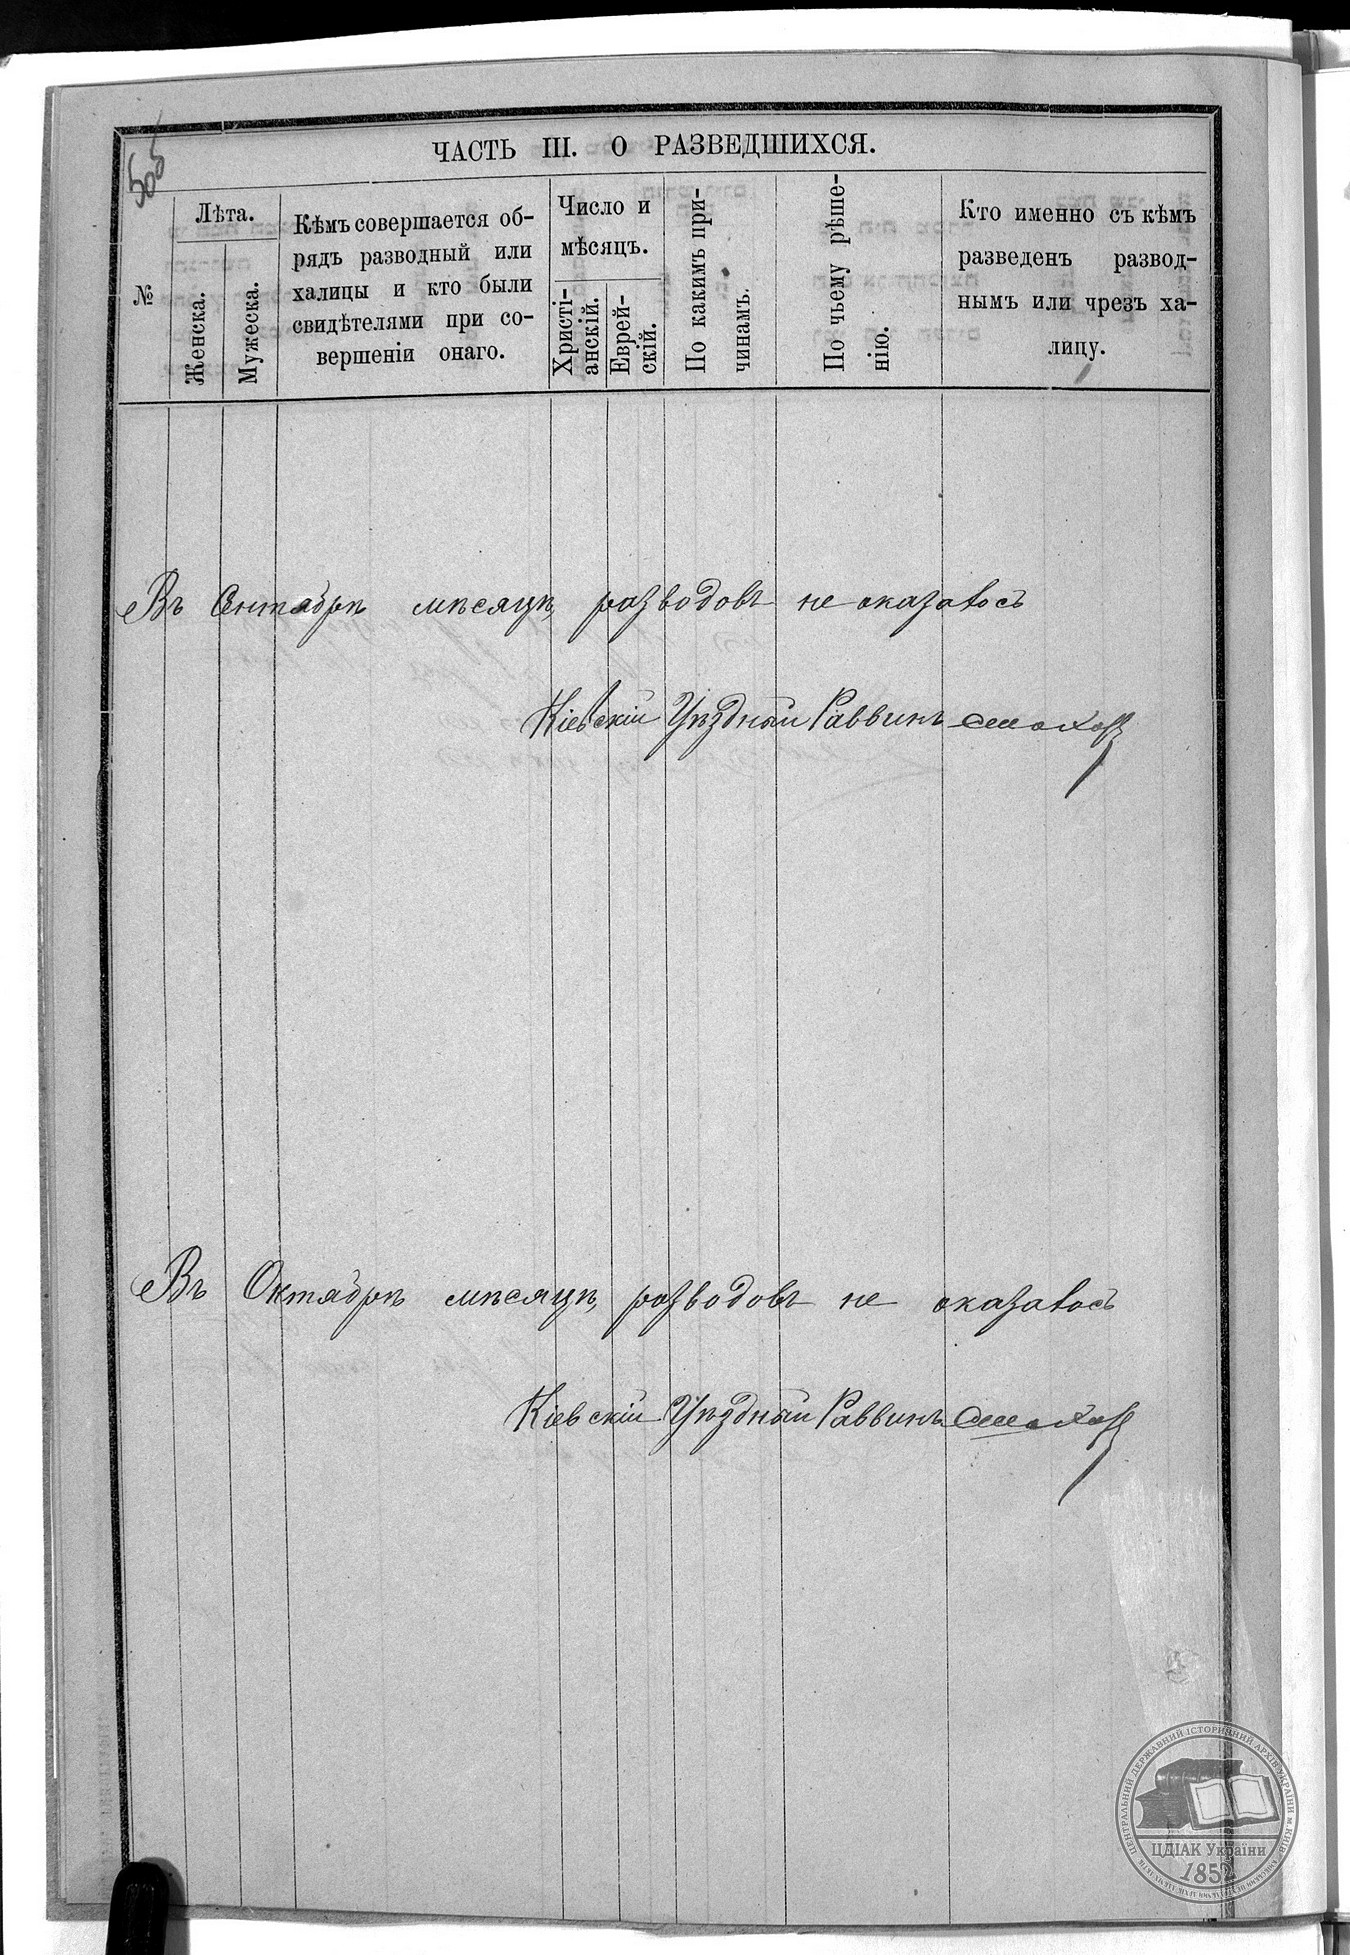 505
ЧАСТЬ III. О РАЗВЕДШИХСЯ.
№
Лѣта.
Женска.
Мужеска.
Кѣмъ совершается об-
рядъ разводный или
халицы и кто были
свидѣтелями при со-
вершеніи онаго.
Число и
мѣсяцъ.
Христі-
анскій.
Еврей-
скій.
По какимъ при-
чинамъ.
По чьему рѣше-
нію.
Кто именно съ кѣмъ
разведенъ развод-
нымъ или чрезъ ха-
лицу.
Въ Сентябрѣ мѣсяцѣ разводовъ не оказалось
Кіевскій Уѣздный Раввинъ
Въ Октябрѣ мѣсяцѣ разводовъ не оказалось
Кіевскій Уѣздный Раввинъ
ЦЕНТРАЛЬНИЙ ДЕРЖАВНИЙ ІСТОРИЧНИЙ АРХІВ УКРАЇНИ м. КИЇВ
ЦДІАК України
1852